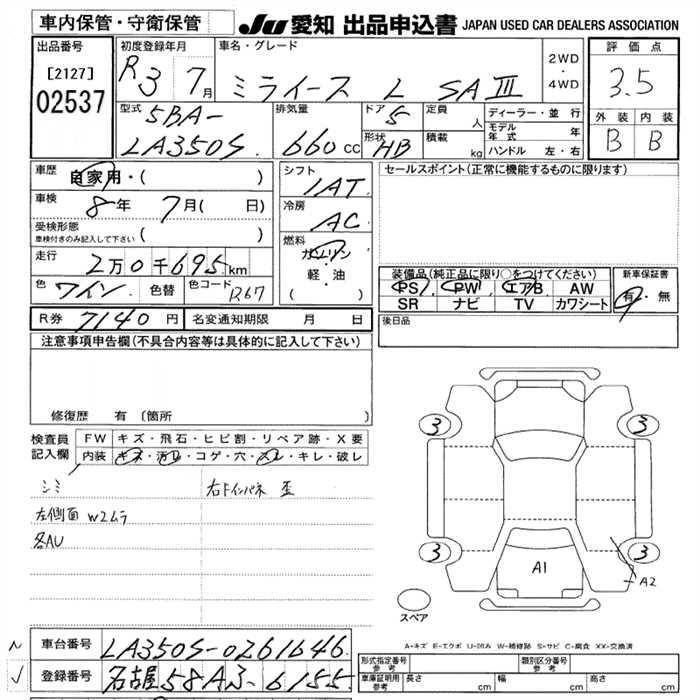 車内保管・守衛保管
JU 愛知 出品申込書 JAPAN USED CAR DEALERS ASSOCIATION
出品番号
[2127]
02537
初度登録年月
R3 7月
車名・グレード
ミライース L SAⅢ
2WD
・
4WD
評価点
3.5
外装 内装
B B
型式
5BA-
LA350S
排気量
660cc
ドア 5
形状 HB
定員 人
積載 kg
ディーラー・並行
モデル年 年
ハンドル 左・右
車歴
自家用・( )
車検
8年 7月( 日)
受検形態
車検付きのみ記入して下さい ( )
走行
2万0千695km
色 ワイン 色替 色コード R67
シフト
IAT
冷房
AC
燃料
ガソリン
・
軽・油
( )
セールスポイント(正常に機能するものに限ります)
装備品(純正品に限り○をつけてください)
PS PW エアB AW
SR ナビ TV カワシート
新車保証書
有・無
R券 7140円 名変通知期限 月 日
後日品
注意事項申告欄(不具合内容等は具体的に記入して下さい)
修復歴 有 〔箇所
検査員
記入欄
FW キズ・飛石・ヒビ割・リペア跡・X要
内装 キズ・汚れ・コゲ・穴・スレ・キレ・破レ
シミ 右Fインパネ 歪
左側面 W2ムラ
各AU
3 3
3 3
A1
A2
スペア
A-キズ E-エクボ U-凹み W-補修跡 S-サビ C-腐食 XX-交換済
車台番号 LA350S-0261646
登録番号 名古屋58A3-6155
形式指定番号
参考
類別区分番号
参考
車庫証明用
参考
長さ cm 幅 cm 高さ cm